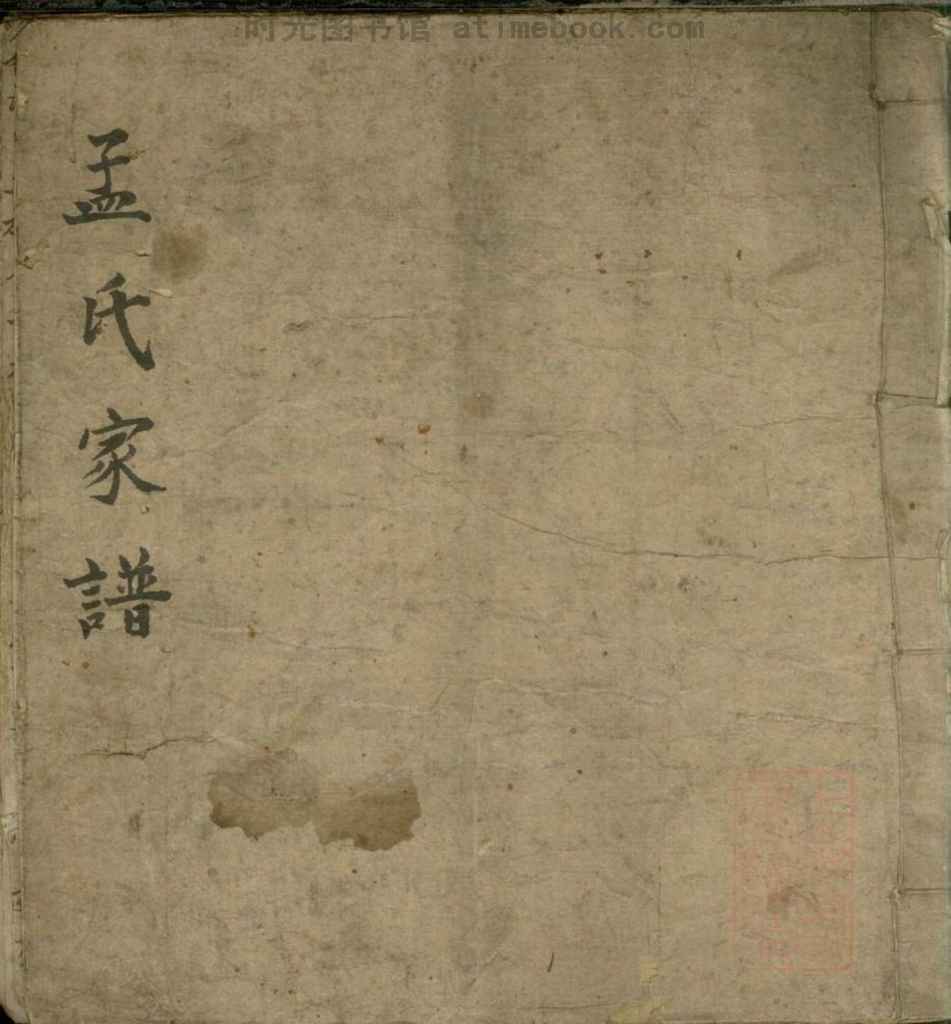 时光图书馆 atimebook.com
孟氏家譜